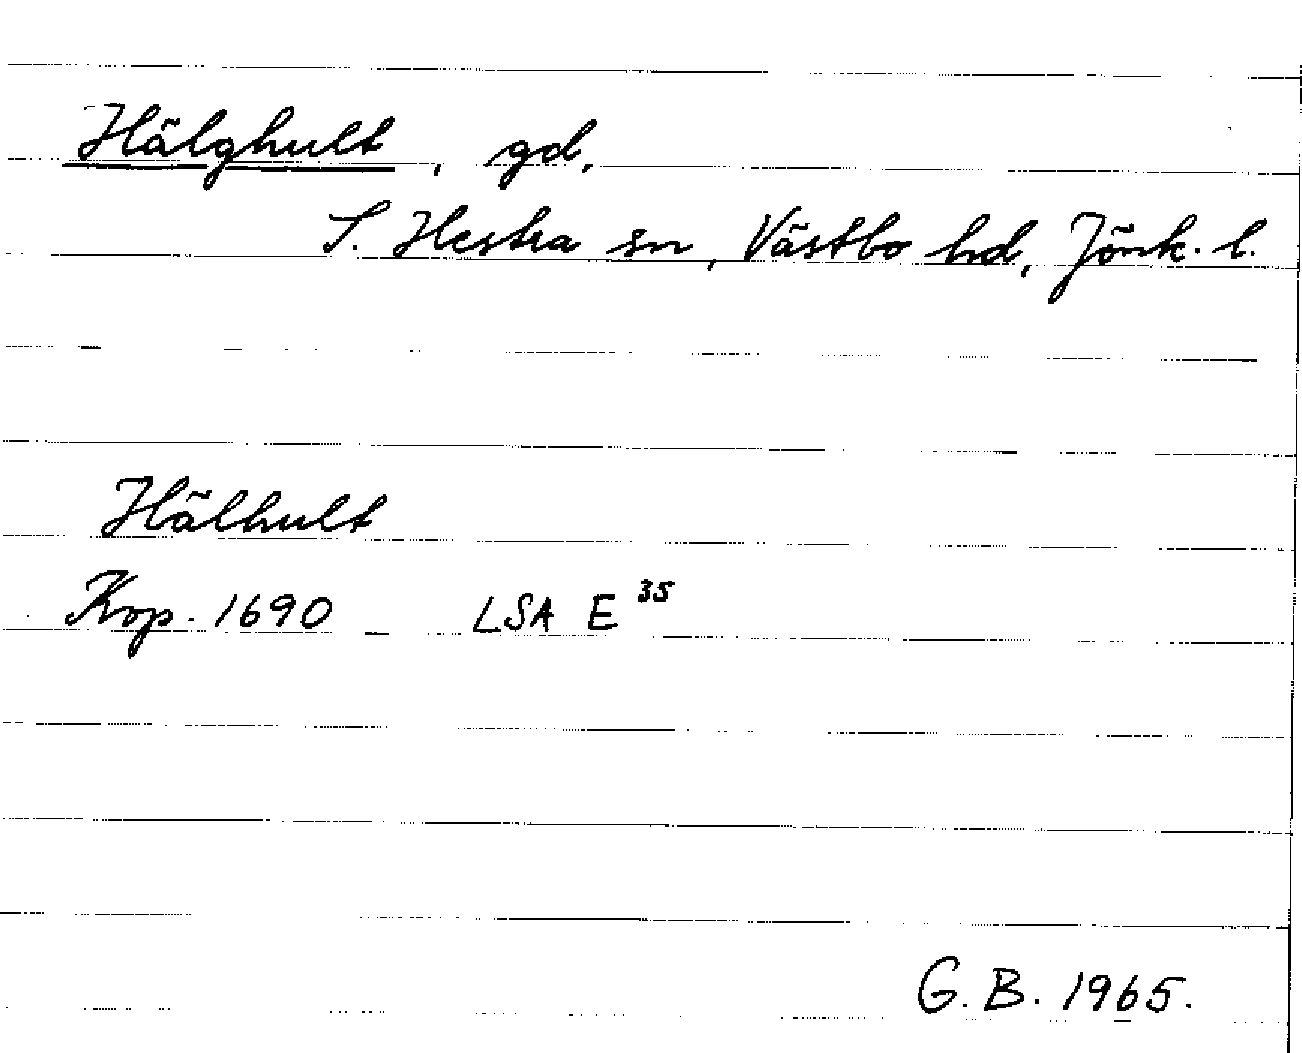 Hälghult, gd,
S. Hestra sn, Västbo hd, Jönk. l.
Hälhult
Kop. 1690 LSA E 35
G. B. 1965.